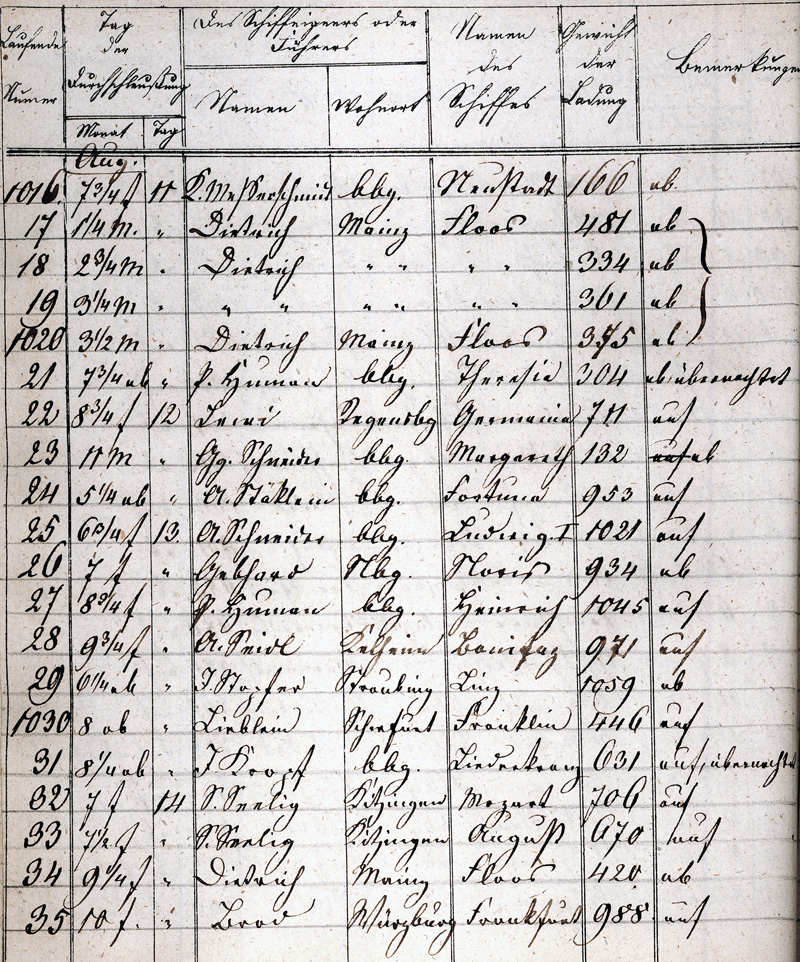 Laufende Numer
Tag der Durchschleußung
Monat Tag
Des Schiffeigners oder Führers
Namen Wohnort
Namen des Schiffes
Gewicht der Ladung
Bemerkungen
Aug.
1016. 7 3/4 f 11 K. Messerschmidt bbg. Neustadt 166 ab.
17 1 1/4 M. " Dietrich Mainz Floos 481 ab
18 2 3/4 M " Dietrich " " " " 334 ab
19 3 1/4 M " " " " " " " 361 ab
1020 3 1/2 M " Dietrich Mainz Floos 375 ab
21 7 3/4 ab " P. Human bbg. Theresia 304 ab übernachtet
22 8 3/4 f 12 Regensbg Germania 711 auf
23 11 M " Gg. Schneider bbg. Margareth 132 auf ab
24 5 1/4 ab " A. Stäklein bbg. Fortuna 953 auf
25 6 3/4 f 13 A. Schneider bbg. Ludwig I 1021 auf
26 7 f " Gebhard Nbg. Noris 934 ab
27 8 3/4 f " P. Human bbg. Heinrich 1045 auf
28 9 3/4 f " A. Seidl Kelheim Bonifaz 971 auf
29 6 1/4 ab " J. Stopfer Straubing Linz 1059 ab
1030 8 ab " Lieblein Schwfurt Franklin 446 auf
31 8 1/4 ab " J. Kropf bbg. Liederkranz 631 auf, übernachtet
32 7 f 14 S. Seelig Kitzingen Mozart 706 auf
33 7 1/2 f " S. Seelig Kitzingen August 670 auf
34 9 1/4 f " Dietrich Mainz Floos 420 ab
35 10 f. " Brod Würzburg Frankfurt 988 auf